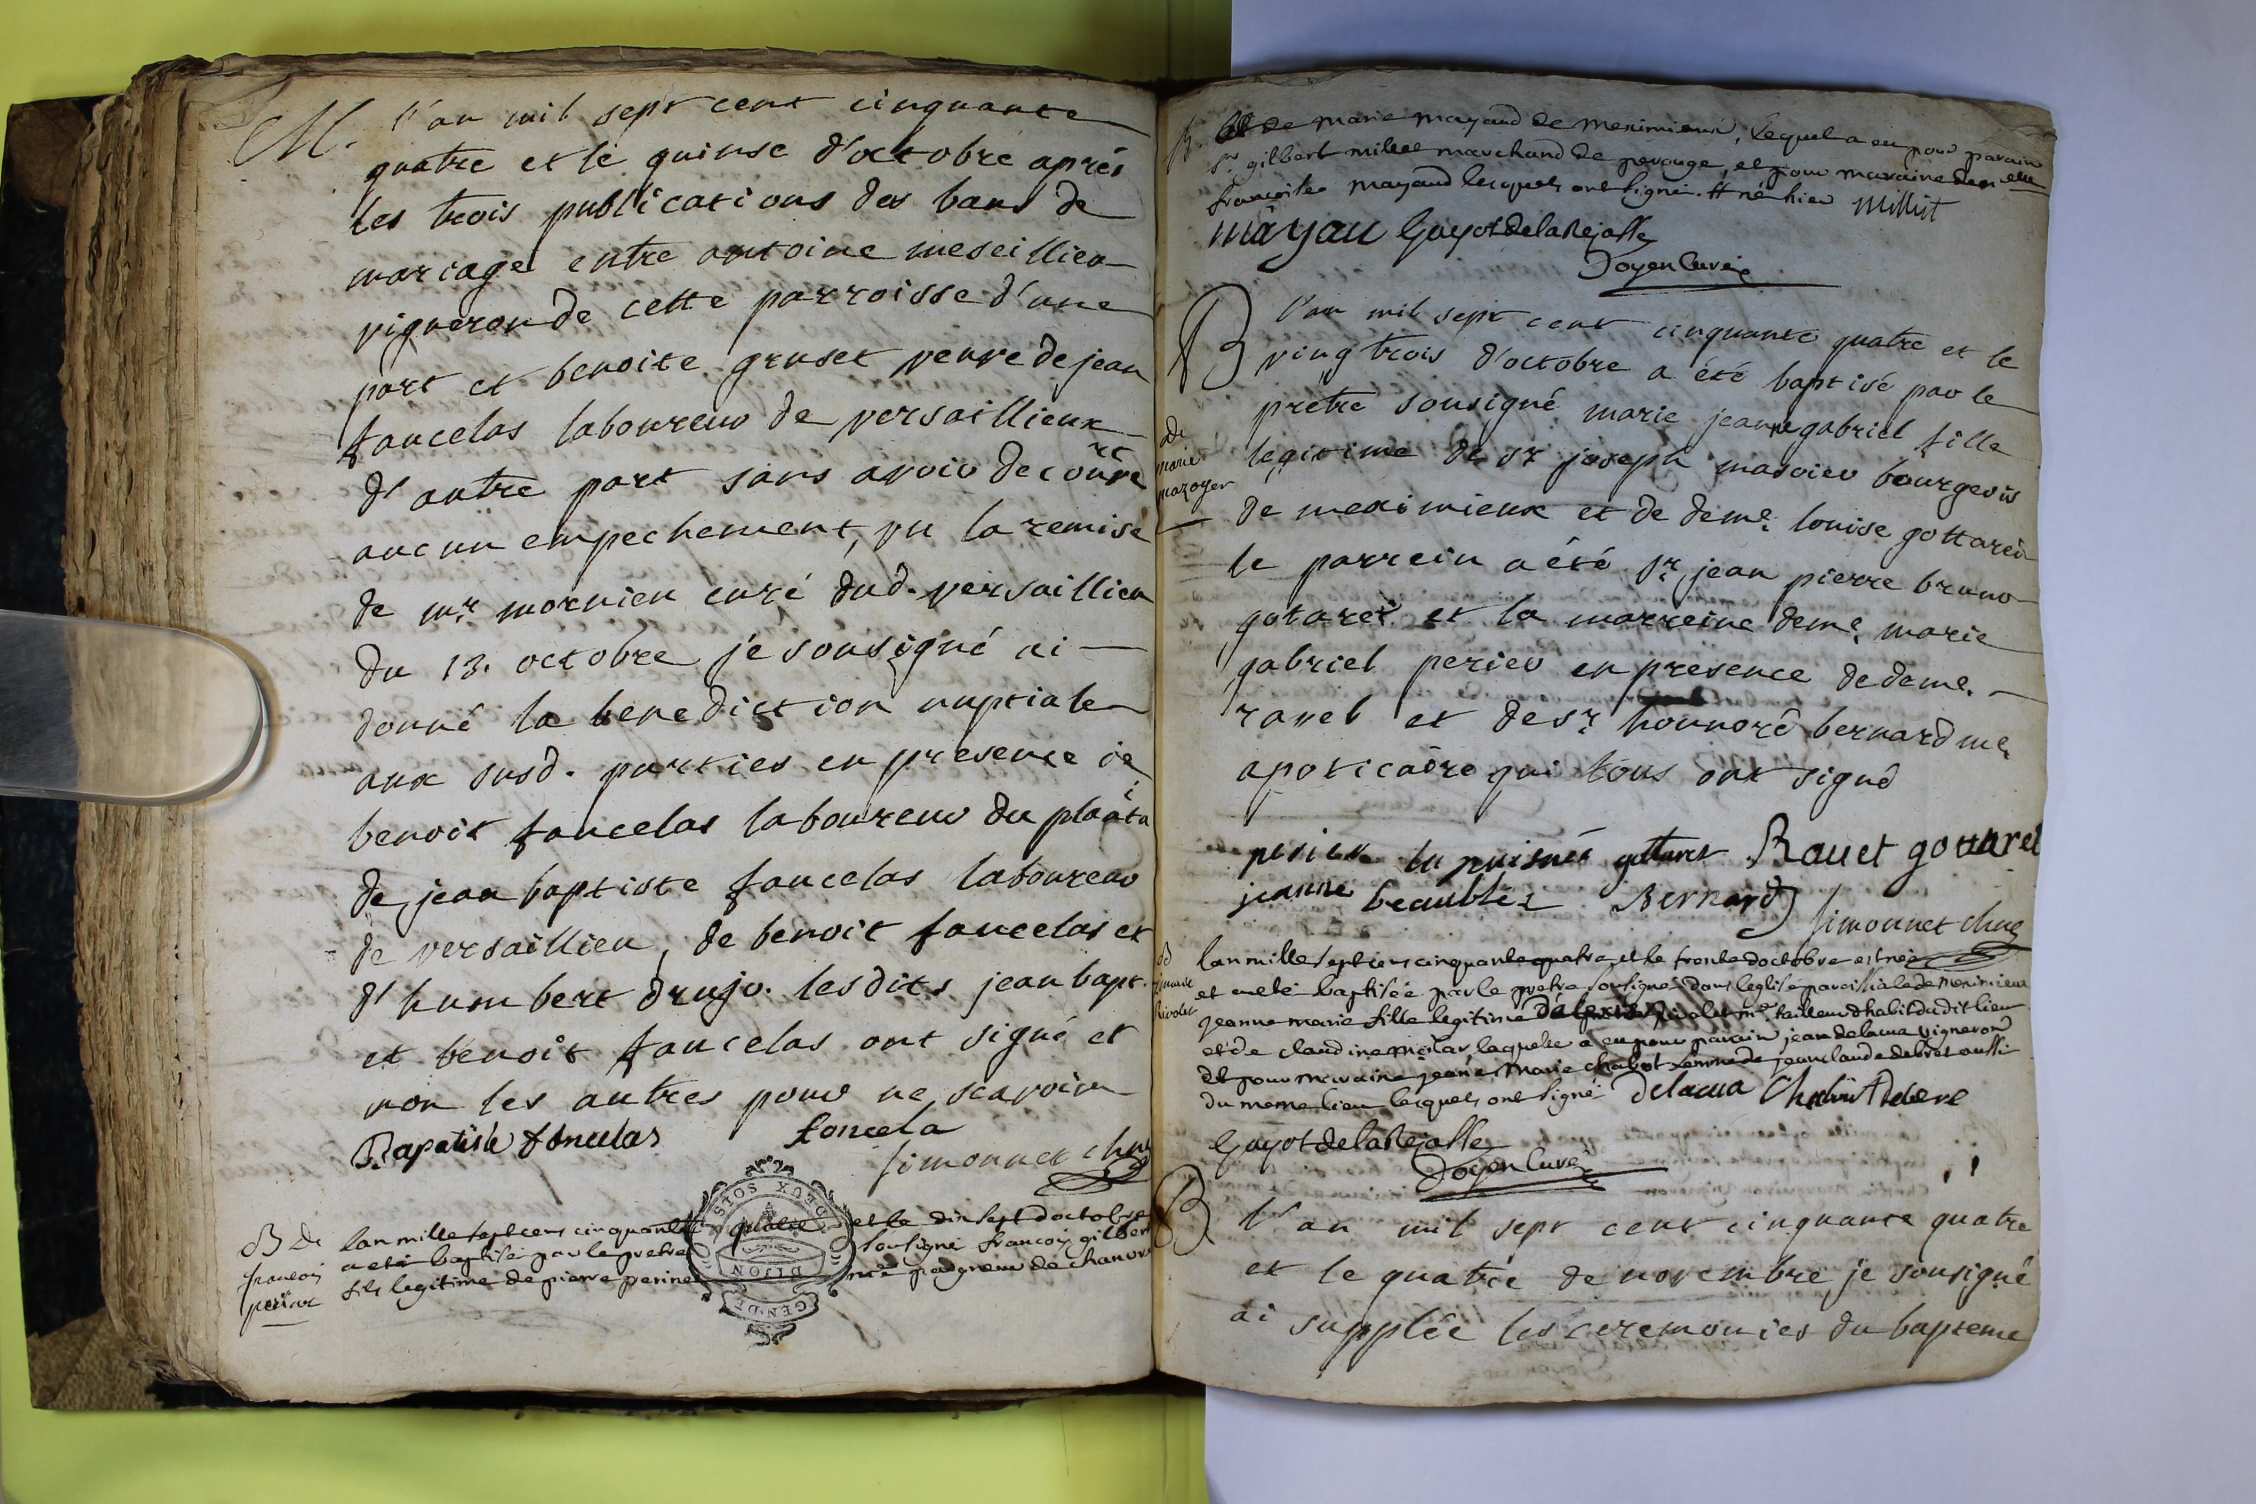 M. l'an mil sept cent cinquante
quatre et le quinse d'octobre aprés
les trois publications des bans de
mariage entre antoine meseillieu
vigneron de cette parroisse d'une
part et benoite gruset veuve de jean
foucelas laboureur de versaillieux
d'autre part sans avoir decouvert
aucun empechement, vu la remise
de mr. mornieu curé dud. versaillieu
du 13. octobre je sousigné ai
donné la benediction nuptiale
aux susd. parties en presence de
benoit foucelas laboureur du
de jean baptiste foucelas laboureur
de versaillieu, de benoit foucelas et
d'humbert drujo. lesdits jean bapt.
et benoit foucelas ont signé et
non les autres pour ne scavoir
Bapatiste fonselas foncela
simonnet chne
B de
francois
perinet
lan mille sept cens cinquante quatre et le dix sept doctobre
a eté baptisé par le pretre sousigné francois gilbert
fils legitime de pierre perinet me peigneur de chanvre
DEUX SOLS
DIJON
GEN. DE
et de marie mayaud de meximieux, lequel a eu pour parain
sr. gilbert millet marchand de perouge, et pour maraine demelle
francoise mayaud lesquels ont signé. # né hier millit
mayau Guyot delaRejasse
Doyen Curé
B l'an mil sept cent cinquante quatre et le
vingtrois d'octobre a été baptisé par le
pretre sousigné marie jeanne gabriel fille
legitime de sr joseph masoier bourgeois
de meximieux et de deme. louise gottarel
le parrein a été sr. jean pierre bruno
gotarel et la marreine deme. marie
gabriel perier en presence de deme.
ravel et de sr. honnoré bernard me.
apoticaire qui tous ont signé
de
marie
mazoyer
perier gottaret Rauet gottarel
jeanne Bernard
simonnet chne
Bd
jeanne
Rivolet
lan mille sept cens cinquante quatre et le trente doctobre est née
et a eté baptisée par le pretre sousigné dans leglise paroissiale de meximieux
jeanne marie fille legitime dalexis Rivolet me tailleur dhabit dudit lieu
et de claudine molar laquelle a eu pour parain jean delacua vigneron
et pour maraine jeane marie chabot femme de jean claude debret aussi
du meme lieu lesquels ont signé Delacua
Guyot delaRejasse
Doyen Curé
B l'an mil sept cent cinquante quatre
et le quatre de novembre je sousigné
ai supplée les ceremonies du bapteme